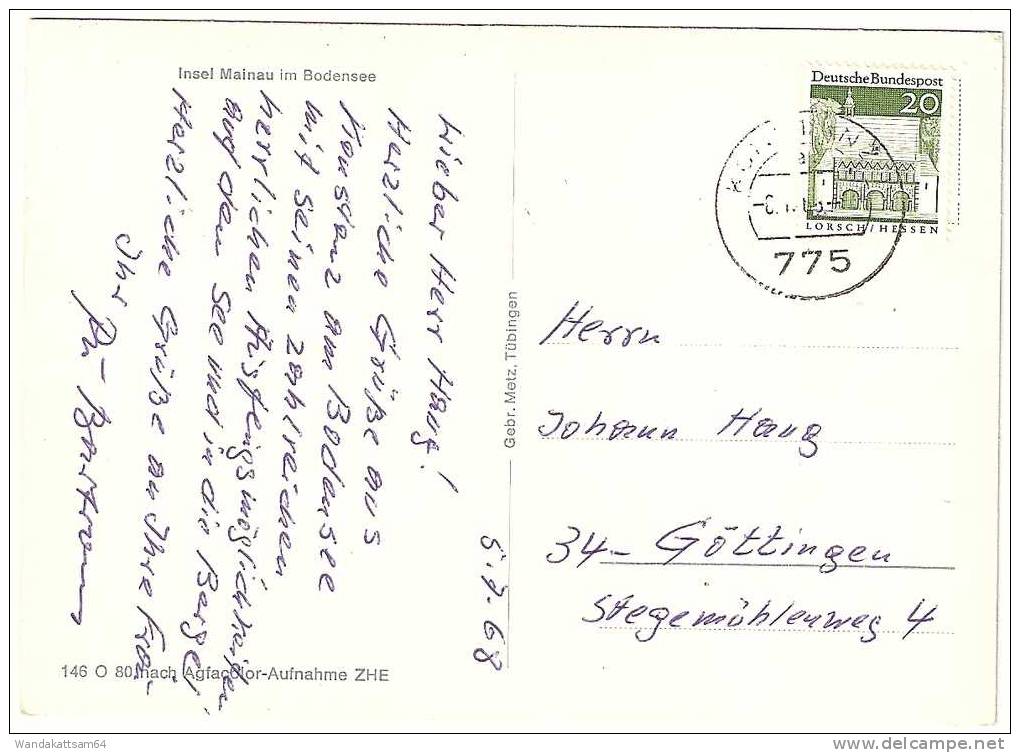 Insel Mainau im Bodensee
5.7.68
Lieber Herr Haug!
Herzliche Grüße aus
Konstanz am Bodensee
mit seinen zahlreichen
herrlichen Ausflugsmöglichkeiten
auf den See und in die Berge!
Herzliche Grüße an Ihre Frau
Ihr
146 O 80 nach Agfacolor-Aufnahme ZHE
Gebr. Metz, Tübingen
Deutsche Bundespost
20
LORSCH/HESSEN
775
Herrn
Johann Haug
34- Göttingen
Stegemühlenweg 4
Wandakattsam64
delcampe.net